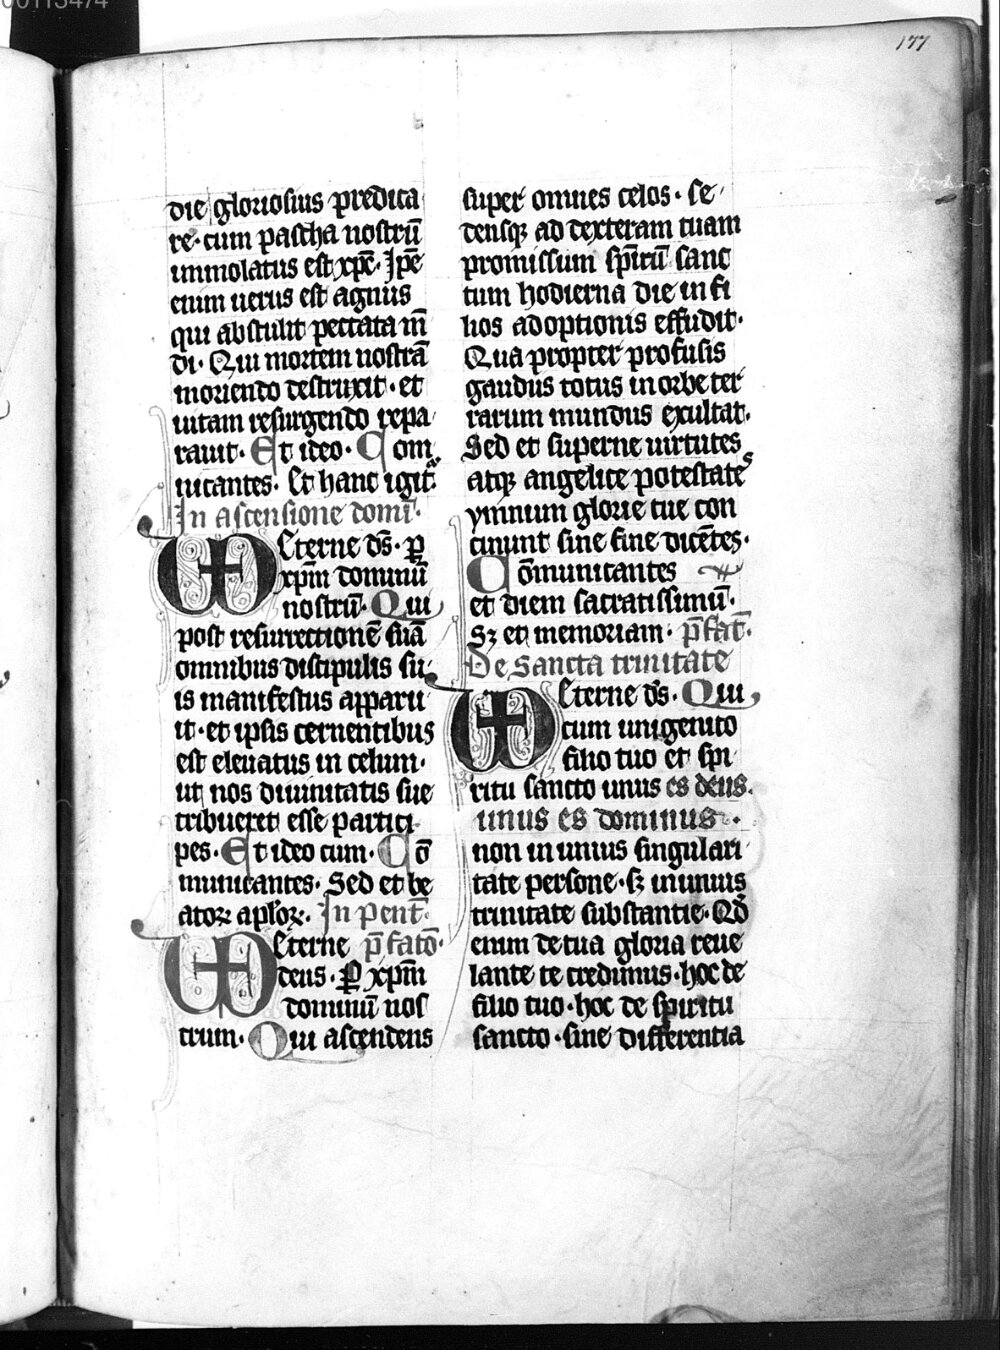 00113474
177
die gloriosius predica
re· cum pascha nostrū
immolatus est xp̄c· Ip̄e
enim uerus est agnus
qui abstulit peccata mū
di· Qui mortem nostrā
moriendo destruxit· et
uitam resurgendo repa
rauit· Et ideo· Com
nicantes· Et hanc igit᷑
In ascensione domī·
Eterne ds̄· ꝑ
xp̄m dominū
nostrū· Qui
post resurrectionē suā
omnibus discipulis su
is manifestus apparu
it· et ipsis cernentibus
est eleuatus in celum·
ut nos diuinitatis sue
tribueret esse partici
pes· Et ideo cum· Cō
municantes· Sed et be
atoꝝ apl̄oꝝ· In pent̄·
Eterne p̄fatō·
deus· ꝑ xp̄m
dominū nos
trum· Qui ascendens
super omnes celos· se
densqꝫ ad dexteram tuam
promissum sp̄itū sanc
tum hodierna die in fi
lios adoptionis effudit·
Qua propter profusis
gaudiis totus in orbe ter
rarum mundus exultat·
Sed et superne uirtutes
atqꝫ angelice potestates
ymnum glorie tue con
cinunt sine fine dicētes·
Cōmunicantes
et diem sacratissimū·
Sꝫ et memoriam· p̄fat̄·
De sancta trinitate
Eterne ds̄· Qui
cum unigenito
filio tuo et spi
ritu sancto unus es deus·
unus es dominus·
non in unius singulari
tate persone· sꝫ in unius
trinitate substantie· Qd̄
enim de tua gloria reue
lante te credimus· hoc de
filio tuo· hoc de spiritu
sancto· sine differentia